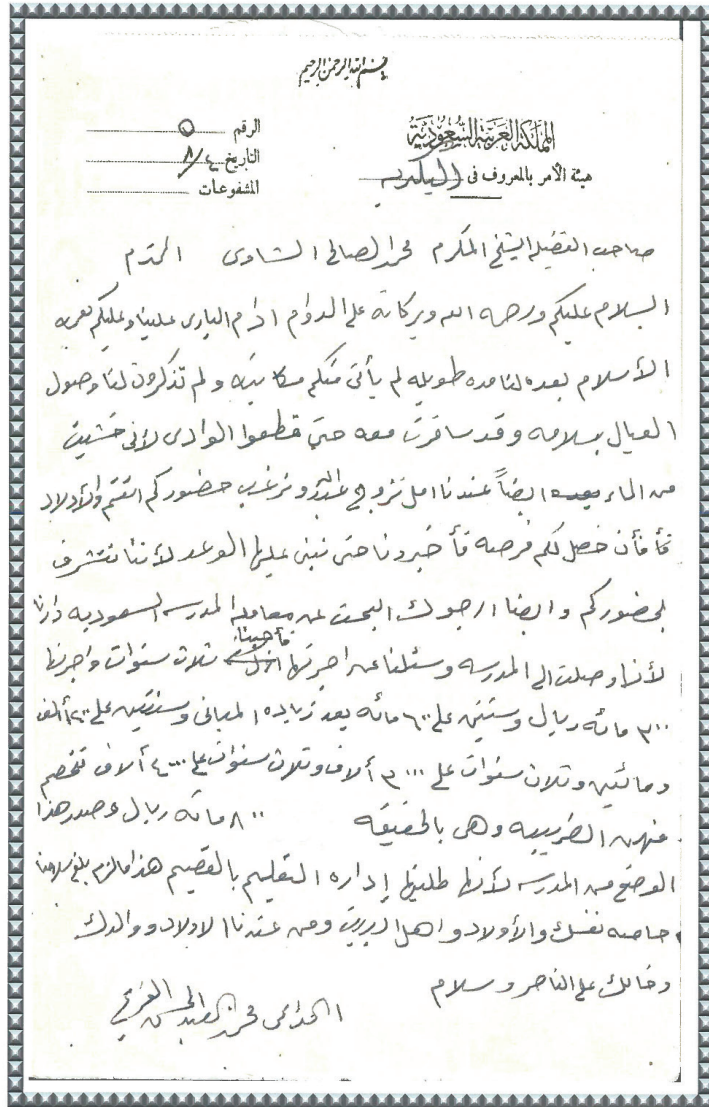 بسم الله الرحمن الرحيم
المملكة العربية السعودية
هيئة الأمر بالمعروف فى البكيريه
الرقم ٥
التاريخ ٨/٤
المشفوعات
صاحب الفضيله الشيخ المكرم محمد الصالح الشاوى المحترم
السلام عليكم ورحمه الله وبركاته على الدوام ادام البارى علينا وعليكم نعمه
الأسلام بعده لنا مده طويله لم يأتى منكم مكاتيبه ولم تذكرون لنا وصول
العيال بسلامه وقد سافرت معه حتى قطعوا الوادى لأنى خشيت
من الماء ايضاً عندنا امل نزوج عبدالله ونرغب حضوركم انتم والأولاد
فأن حصل لكم فرصه فأخبرونا حتى نبنى عليها الوعد لأننا نتشرف
بحضوركم وايضا ارجوك البحث عن معامله المدرسه السعوديه دارنا
لأننا وصلت الى المدرسه وسئلنا عن اجرتها فأجيبنا ثلاث سنوات واجرتها
٣٠٠ مائه ريال وسنتين على ٦٠٠ مائه بعد زياده المبانى وسنتين على ألف
ومائتين وثلاث سنوات على ٣٠٠٠ ألاف وثلاث سنوات على ٤٠٠٠ ألاف تخصم
منهن الضريبيه وهى بالحقيقه ٨٠٠ مائه ريال وصدر هذا
الوضع من المدرسه لأنها طلبتها إداره التعليم بالقصيم هذا مالزم بلغ سلامنا
خاصه نفسك والأولاد واهل البيت ومن عندنا الاولاد ووالدك
وخالك على الناصر وسلام
محمد العبدالمحسن الفريح